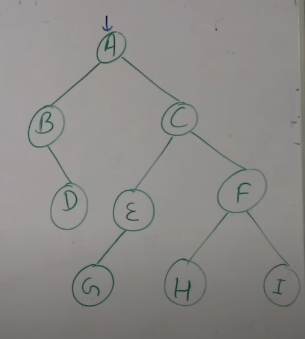 A
B C
D E F
G H I